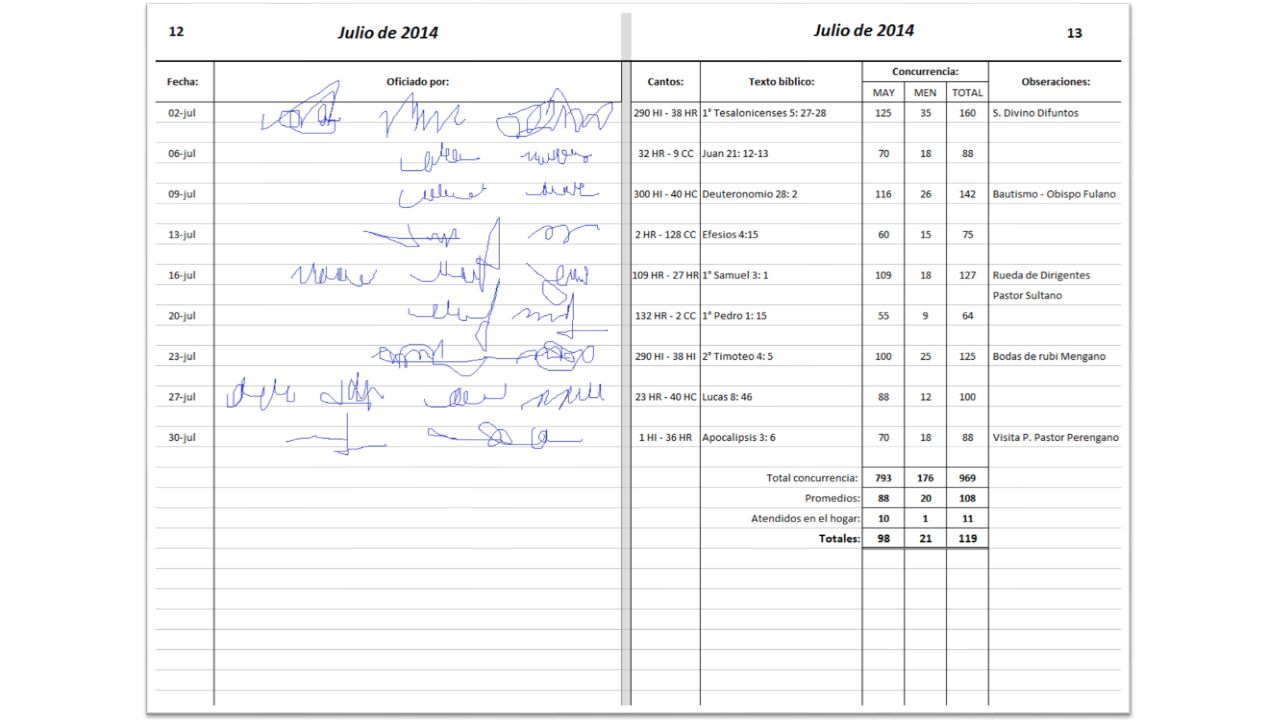 12 Julio de 2014 Julio de 2014 13
Fecha: Oficiado por: Cantos: Texto bíblico: Concurrencia: Obseraciones:
MAY MEN TOTAL
02-jul 290 HI - 38 HR 1° Tesalonicenses 5: 27-28 125 35 160 S. Divino Difuntos
06-jul 32 HR - 9 CC Juan 21: 12-13 70 18 88
09-jul 300 HI - 40 HC Deuteronomio 28: 2 116 26 142 Bautismo - Obispo Fulano
13-jul 2 HR - 128 CC Efesios 4:15 60 15 75
16-jul 109 HR - 27 HR 1° Samuel 3: 1 109 18 127 Rueda de Dirigentes
Pastor Sultano
20-jul 132 HR - 2 CC 1° Pedro 1: 15 55 9 64
23-jul 290 HI - 38 HI 2° Timoteo 4: 5 100 25 125 Bodas de rubi Mengano
27-jul 23 HR - 40 HC Lucas 8: 46 88 12 100
30-jul 1 HI - 36 HR Apocalipsis 3: 6 70 18 88 Visita P. Pastor Perengano
Total concurrencia: 793 176 969
Promedios: 88 20 108
Atendidos en el hogar: 10 1 11
Totales: 98 21 119